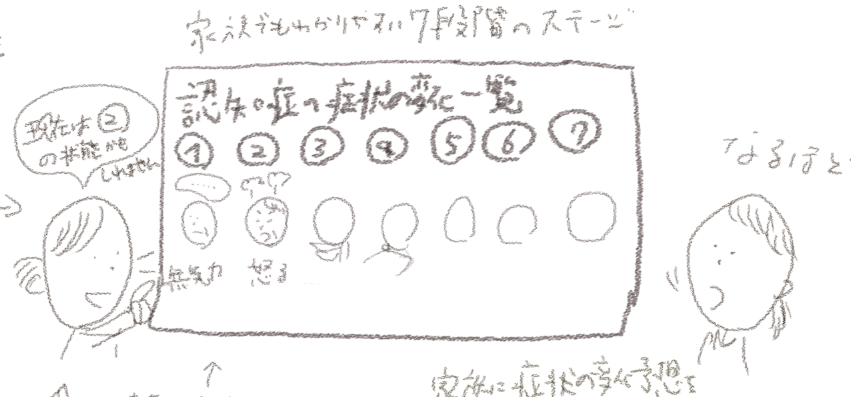 家族でもわかりやすい7段階のステージ
認知症の症状の変化一覧
現在は②
の状態かも
しれません
① ② ③ ④ ⑤ ⑥ ⑦
無気力
怒る
なるほど
家族に症状の変化予想を